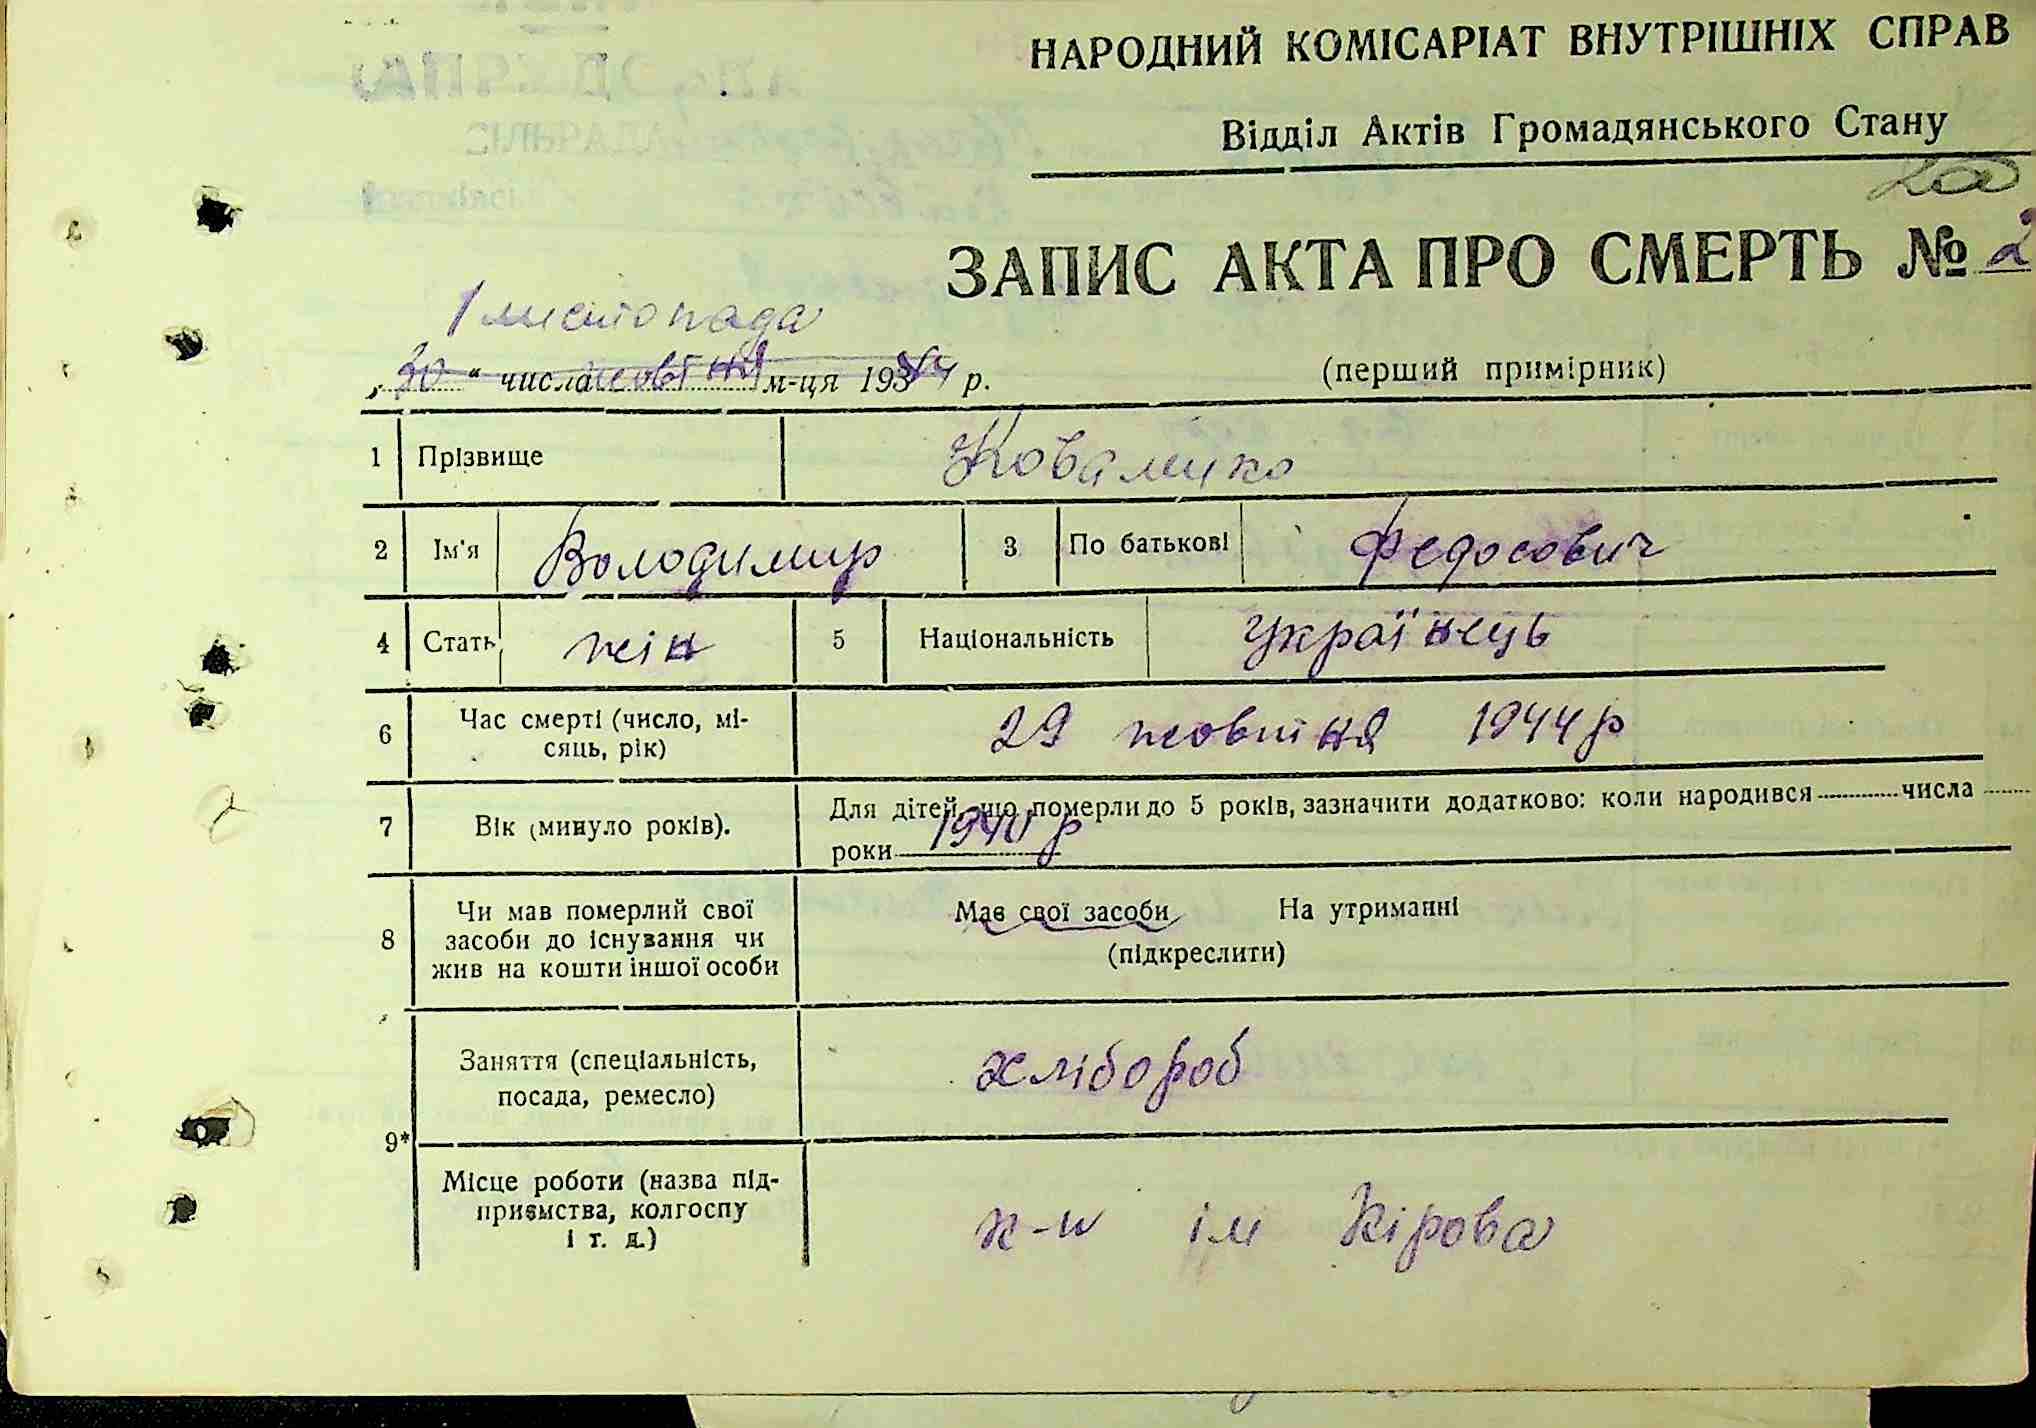 НАРОДНИЙ КОМІСАРІАТ ВНУТРІШНІХ СПРАВ
Відділ Актів Громадянського Стану
ЗАПИС АКТА ПРО СМЕРТЬ № 2
1 листопада
„30“ числа жовтня м-ця 1944 р.
(перший примірник)
1 Прізвище Ковалинко
2 Ім'я Володимир 3 По батькові Федосович
4 Стать жін 5 Національність Українець
6 Час смерті (число, мі-
сяць, рік) 29 жовтня 1944 р
7 Вік (минуло років). Для дітей, що померли до 5 років, зазначити додатково: коли народився числа
роки 1940 р
8 Чи мав померлий свої
засоби до існування чи
жив на кошти іншої особи
Має свої засоби На утриманні
(підкреслити)
9*
Заняття (спеціальність,
посада, ремесло) хлібороб
Місце роботи (назва під-
приємства, колгоспу
і т. д.) к-п ім Кірова